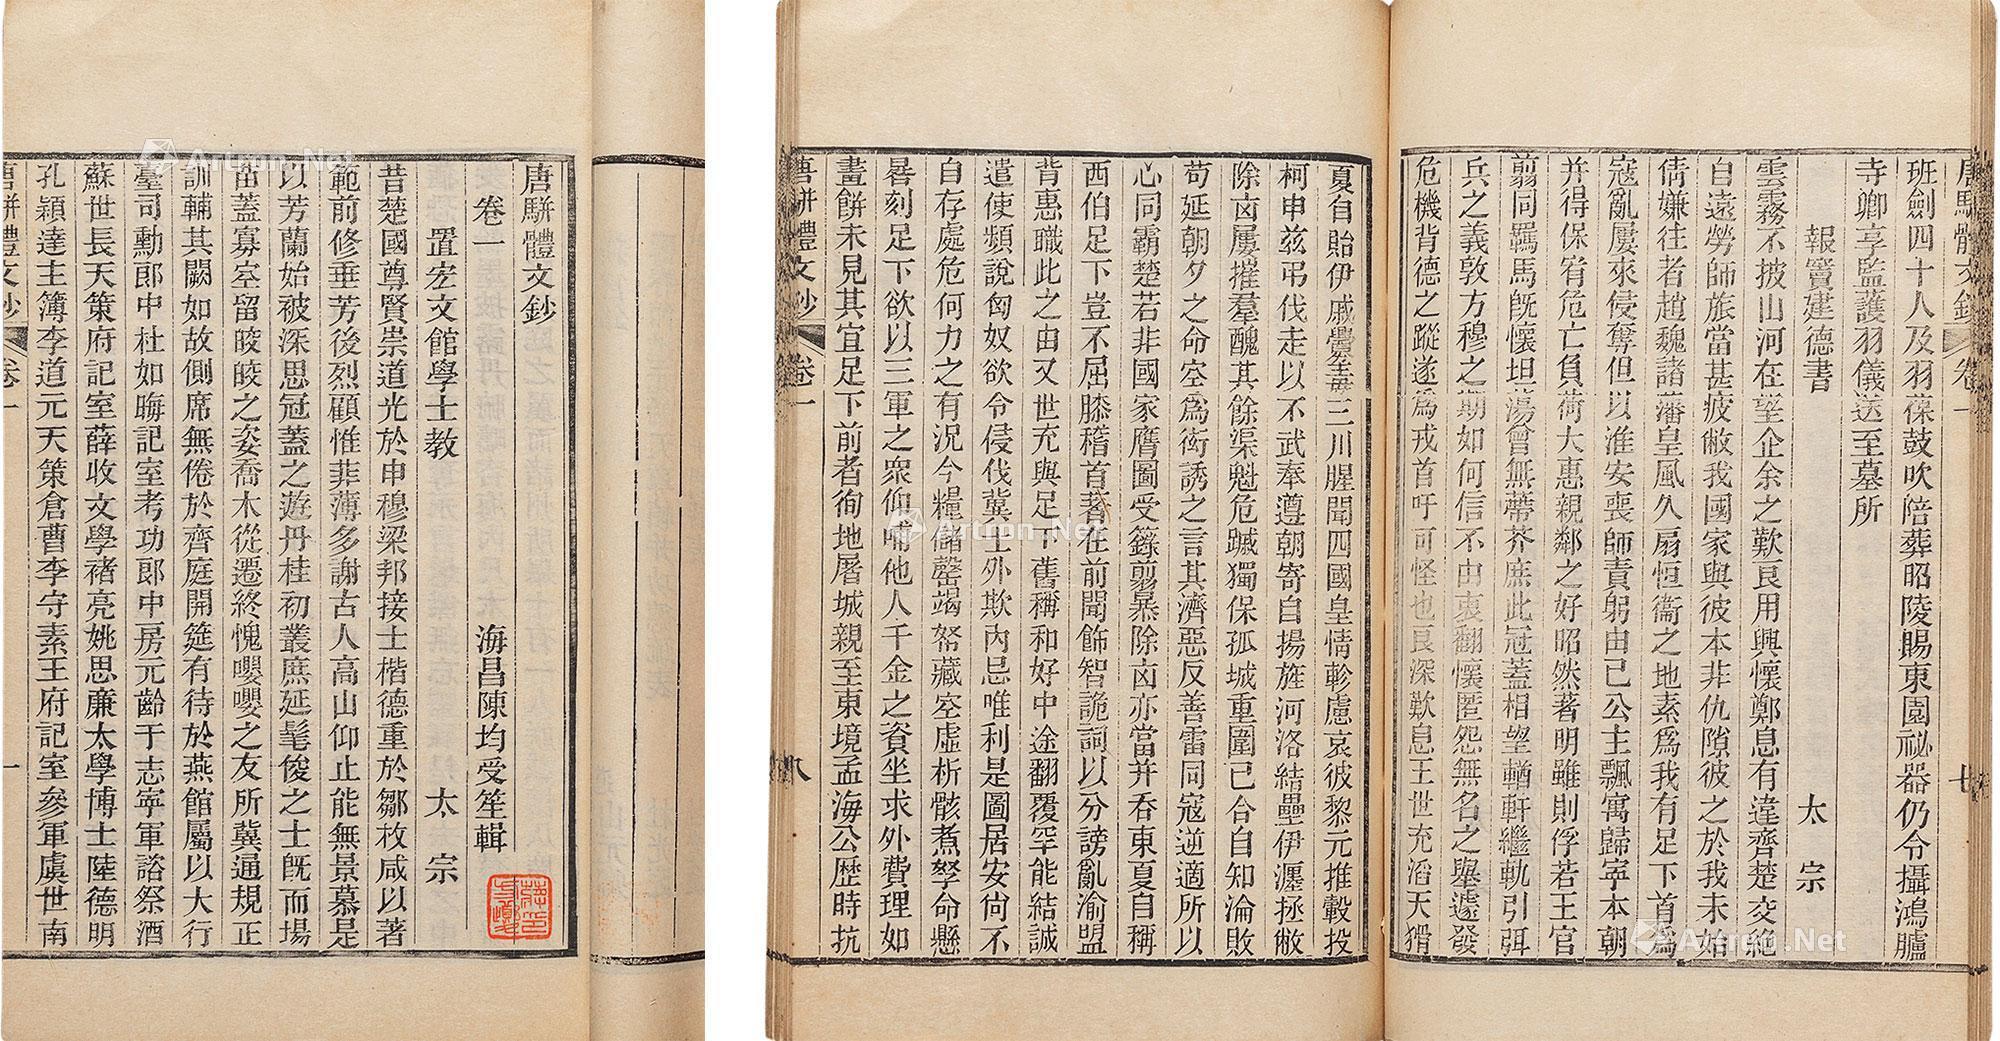 唐駢體文鈔
卷一
海昌陳均受笙輯
置宏文館學士教
太宗
昔楚國尊賢崇道光於申穆梁邦接士楷德重於鄒枚咸以著
範前修垂芳後烈顧惟菲薄多謝古人高山仰止能無景慕是
以芳蘭始被深思冠蓋之遊丹桂初叢庶延髦俊之士旣而場
苗蓋寡空留皎皎之姿喬木從遷終愧嚶嚶之友所冀通規正
訓輔其闕如故側席無倦於齊庭開筵有待於燕館屬以大行
臺司勳郎中杜如晦記室考功郎中房元齡于志寧軍諮祭酒
蘇世長天策府記室薛收文學褚亮姚思廉太學博士陸德明
孔穎達主簿李道元天策倉曹李守素王府記室參軍虞世南
唐駢體文鈔
卷一
一
唐駢體文鈔
卷一
七
班劍四十人及羽葆鼓吹陪葬昭陵賜東園祕器仍令攝鴻臚
寺卿享監護羽儀送至墓所
報竇建德書
太宗
雲霧不披山河在望企余之歎良用興懷鄭息有違齊楚交絶
自遠勞師旅當甚疲敝我國家與彼本非仇隙彼之於我未始
倩嫌往者趙魏諸藩皇風久扇恒衞之地素爲我有足下首爲
寇亂屢來侵奪但以淮安喪師責躬由己公主飄寓歸寧本朝
并得保宥危亡負荷大惠親鄰之好昭然著明雖則俘若王官
翦同羈馬旣懷坦蕩曾無蔕芥庶此冠蓋相望輶軒繼軌引弭
兵之義敦方穆之期如何信不由衷翻懷匿怨無名之舉遽發
危機背德之蹤遂爲戎首吁可怪也良深歎息王世充滔天猾
夏自貽伊戚釁至毒三川腥聞四國皇情軫慮哀彼黎元推轂投
柯申茲弔伐走以不武奉遵朝寄自揚旌河洛結壘伊瀍拯敝
除凶屢摧羣醜其餘渠魁危蹙獨保孤城重圍已合自知淪敗
苟延朝夕之命空爲衒誘之言其濟惡反善雷同寇逆適所以
心同霸楚若非國家膺圖受籙翦暴除凶亦當并吞東夏自稱
西伯足下豈不屈膝稽首著在前聞飾智詭詞以分謗亂渝盟
背惠職此之由又世充與足下舊稱和好中途翻覆罕能結誠
遣使頻說匈奴欲令侵伐冀土外欺內忌唯利是圖居安尙不
自存處危何力之有況今糧儲罄竭帑藏空虛析骸煮孥命懸
晷刻足下欲以三軍之衆仰哺他人千金之資坐求外費理如
畫餅未見其宜足下前者徇地屠城親至東境孟海公歷時抗
唐駢體文鈔
卷一
八